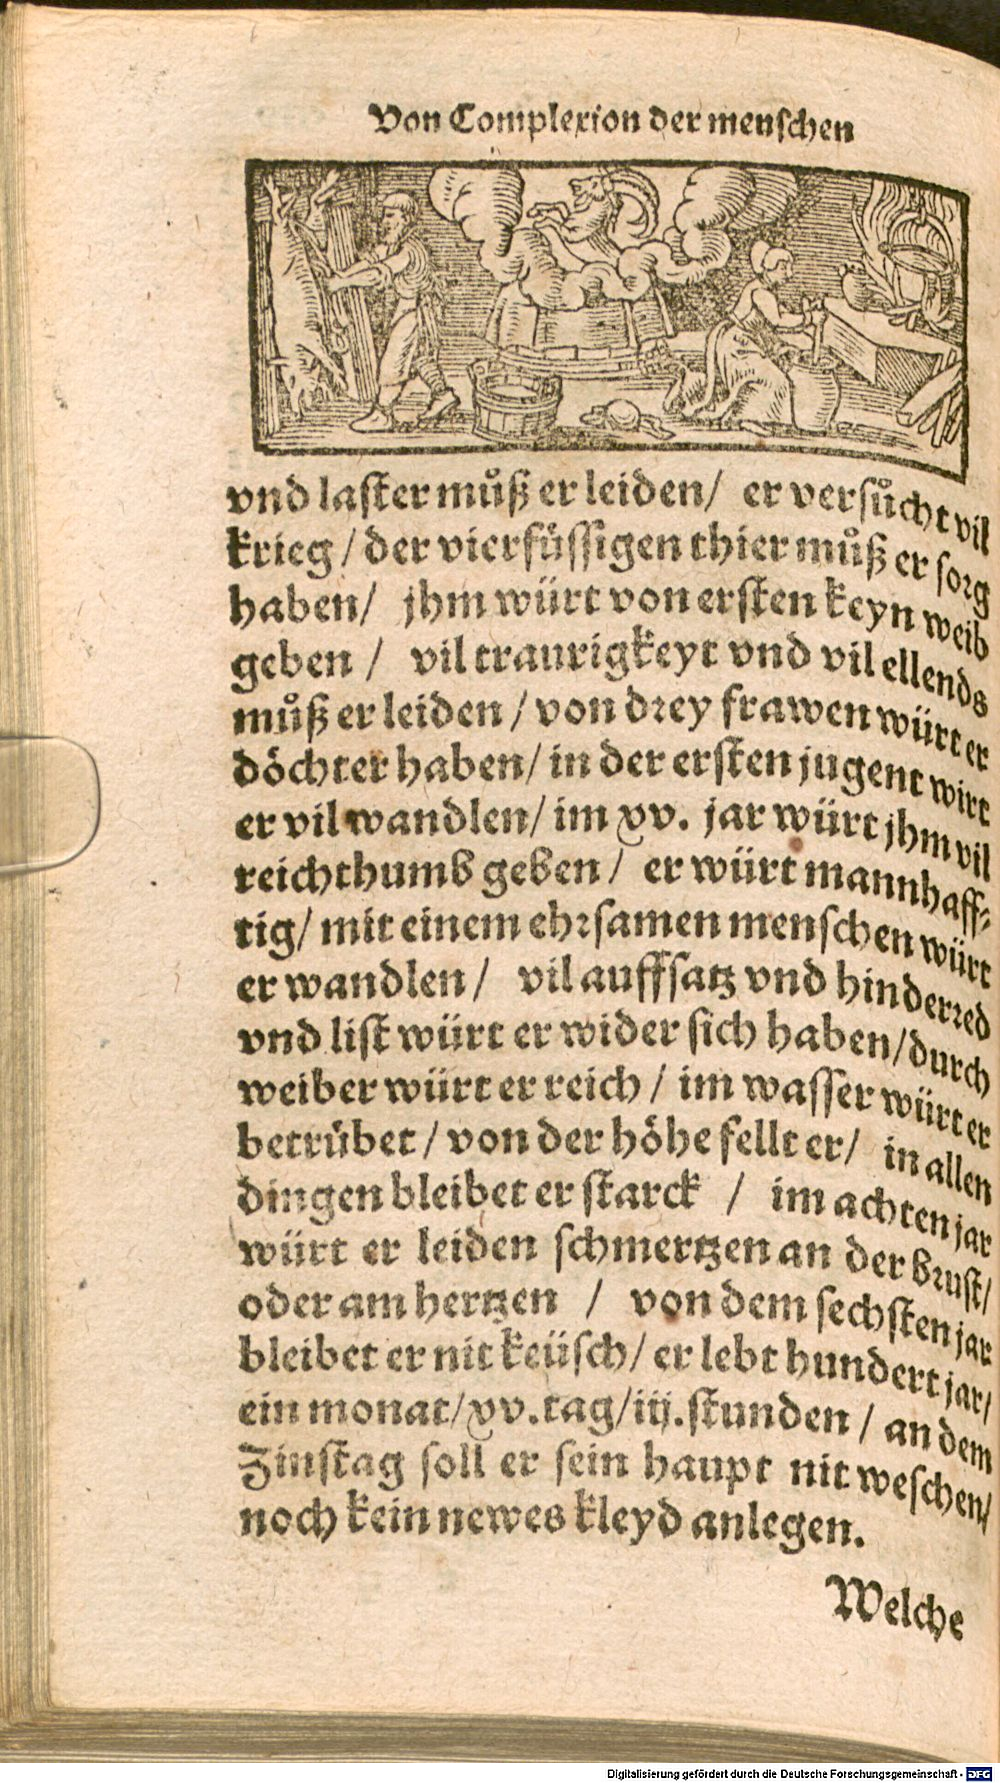 Von Complexion der menschen
vnd laster můß er leiden/ er versůcht vil
krieg/ der vierfüssigen thier můß er sorg
haben/ jhm würt von ersten keyn weib
geben/ vil traurigkeyt vnd vil ellends
můß er leiden/ von drey frawen würt er
döchter haben/ in der ersten jugent wirt
er vil wandlen/ im xv. jar würt jhm vil
reichthumb geben/ er würt mannhaff⸗
tig/ mit einem ehrsamen menschen würt
er wandlen/ vil auffsatz vnd hinderred
vnd list würt er wider sich haben/ durch
weiber würt er reich/ im wasser würt er
betrübet/ von der höhe fellt er/ in allen
dingen bleibet er starck/ im achten jar
würt er leiden schmertzen an der brust/
oder am hertzen/ von dem sechsten jar
bleibet er nit keüsch/ er lebt hundert jar/
ein monat/ xv. tag/ iij. stunden/ an dem
Zinstag soll er sein haupt nit weschen/
noch kein newes kleyd anlegen.
Welche
Digitalisierung gefördert durch die Deutsche Forschungsgemeinschaft - DFG